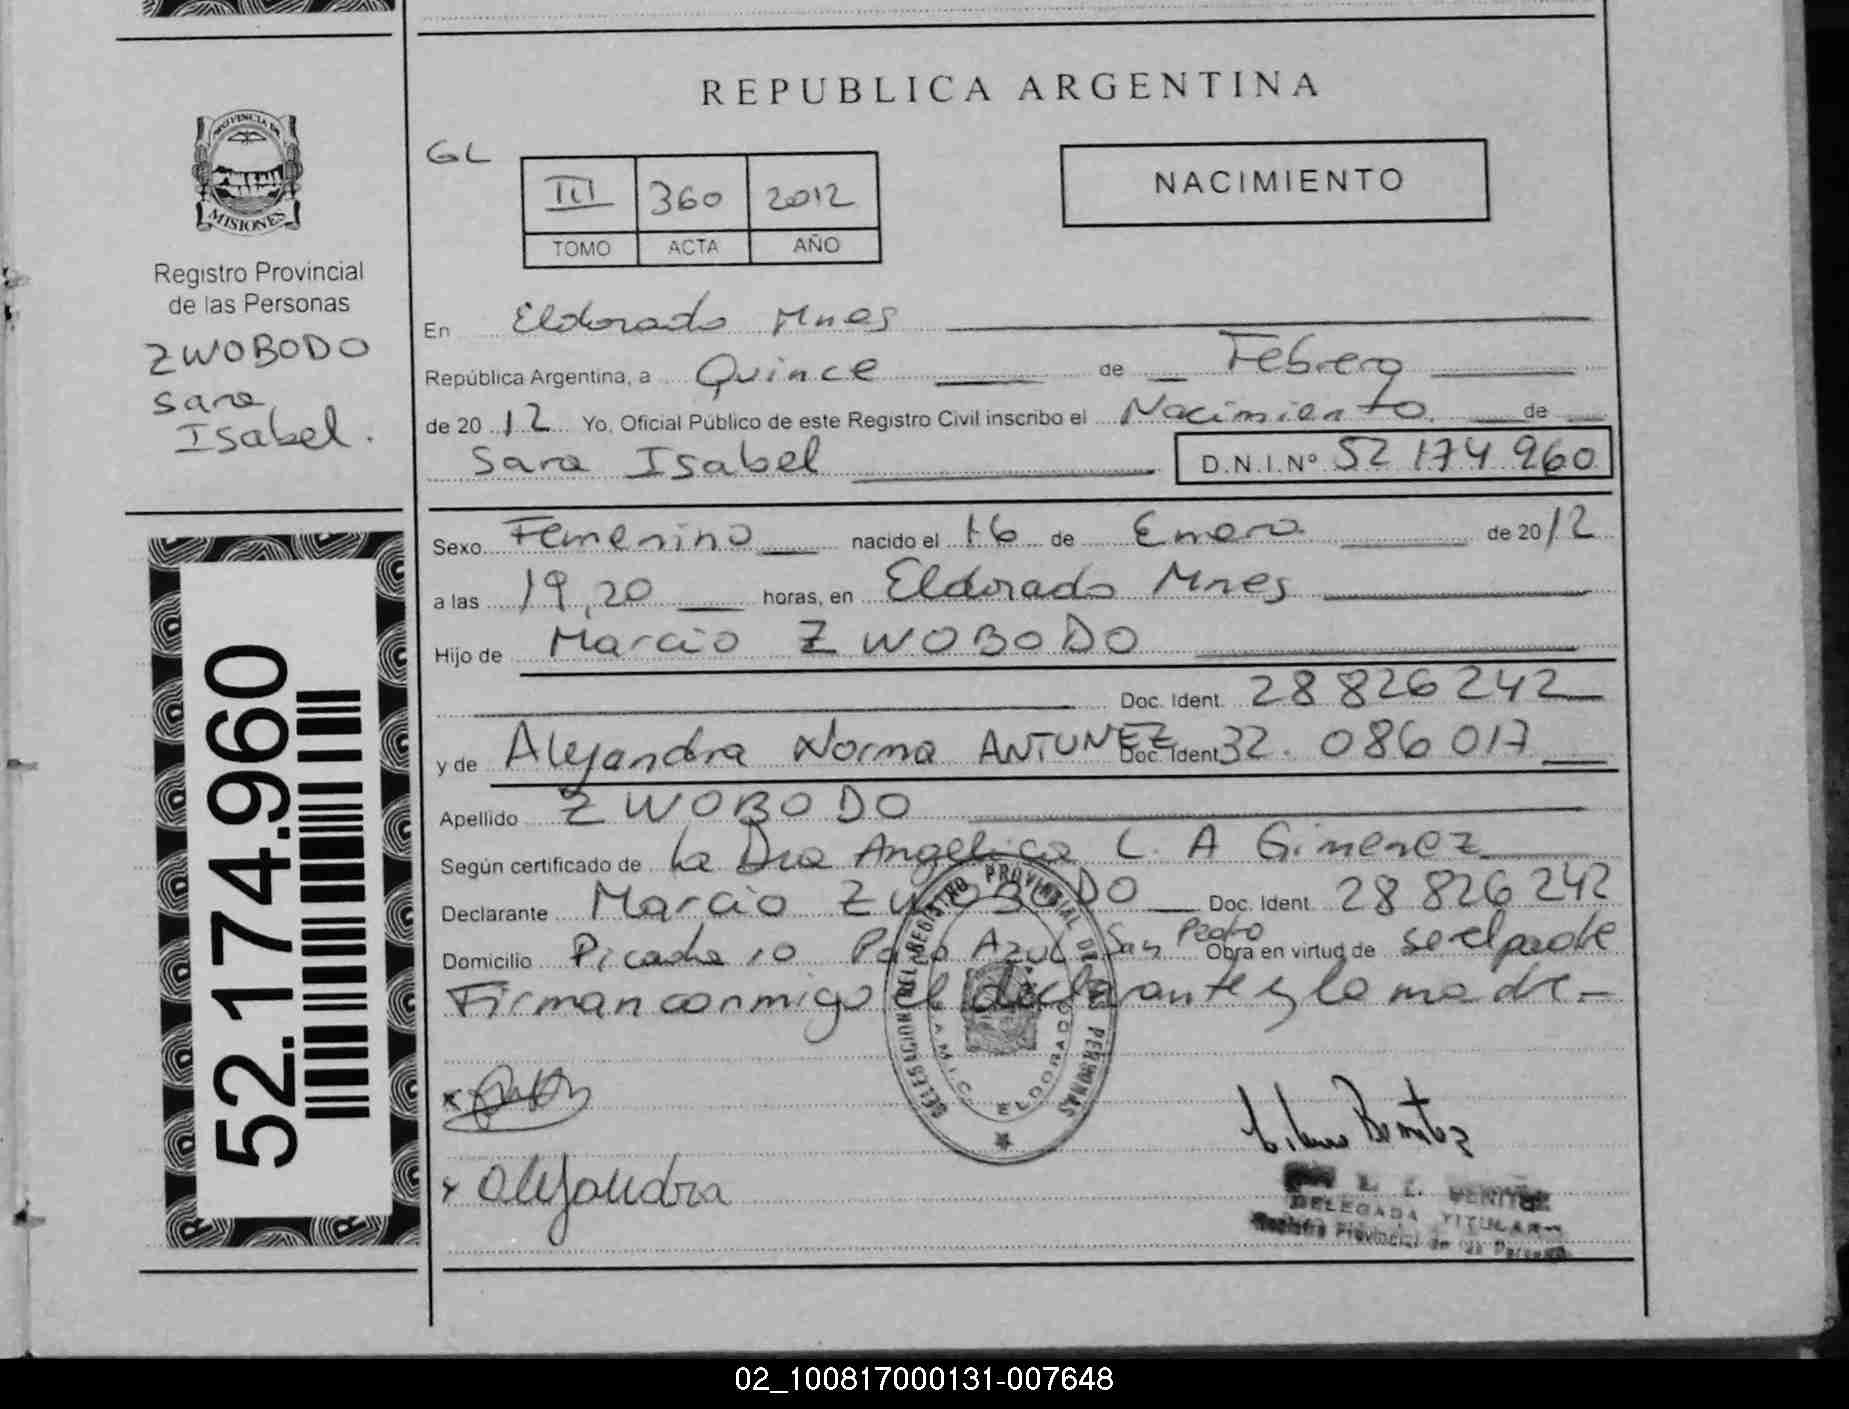 REPUBLICA ARGENTINA
PROVINCIA DE
MISIONES
Registro Provincial
de las Personas
ZWOBODO
Sara
Isabel.
52.174.960
GL
III 360 2012
TOMO ACTA AÑO
NACIMIENTO
En Eldorado Mnes
República Argentina, a Quince de Febrero
de 2012 Yo, Oficial Público de este Registro Civil inscribo el Nacimiento de
Sara Isabel D.N.I.Nº 52 174 960
Sexo Femenino nacido el 16 de Enero de 2012
a las 19,20 horas, en Eldorado Mnes
Hijo de Marcio ZWOBODO
Doc. Ident. 28 826 242
y de Alejandra Norma ANTUNEZ Doc. Ident 32.086 017
Apellido ZWOBODO
Según certificado de La Dra Angelica L. A Gimenez
Declarante Marcio ZWOBODO Doc. Ident. 28 826 242
Domicilio Picada 10 Azul San Pedro Obra en virtud de ser el padre
Firman conmigo el declarante y la madre-
REGISTRO PROVINCIAL DE PERSONAS
ELDORADO
x
x Alejandra
L. I. BENITEZ
DELEGADA TITULAR
Registro Provincial de
02_100817000131-007648